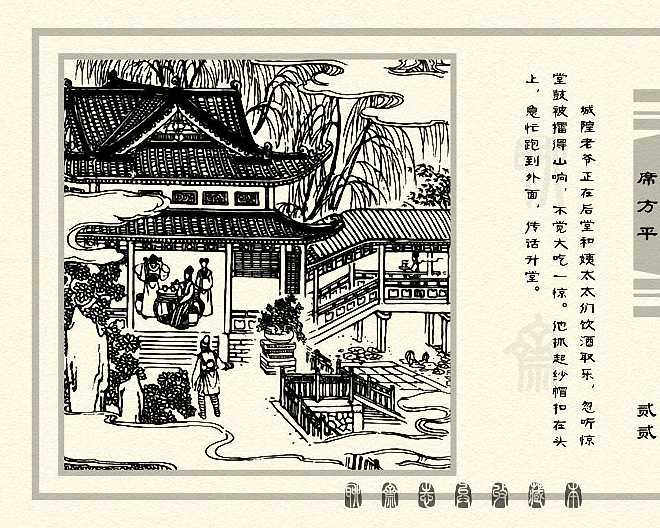 城隍老爷正在后堂和姨太太们饮酒取乐，忽听惊
堂鼓被擂得山响，不觉大吃一惊。他抓起纱帽扣在头
上，急忙跑到外面，传话升堂。
席方平
贰贰